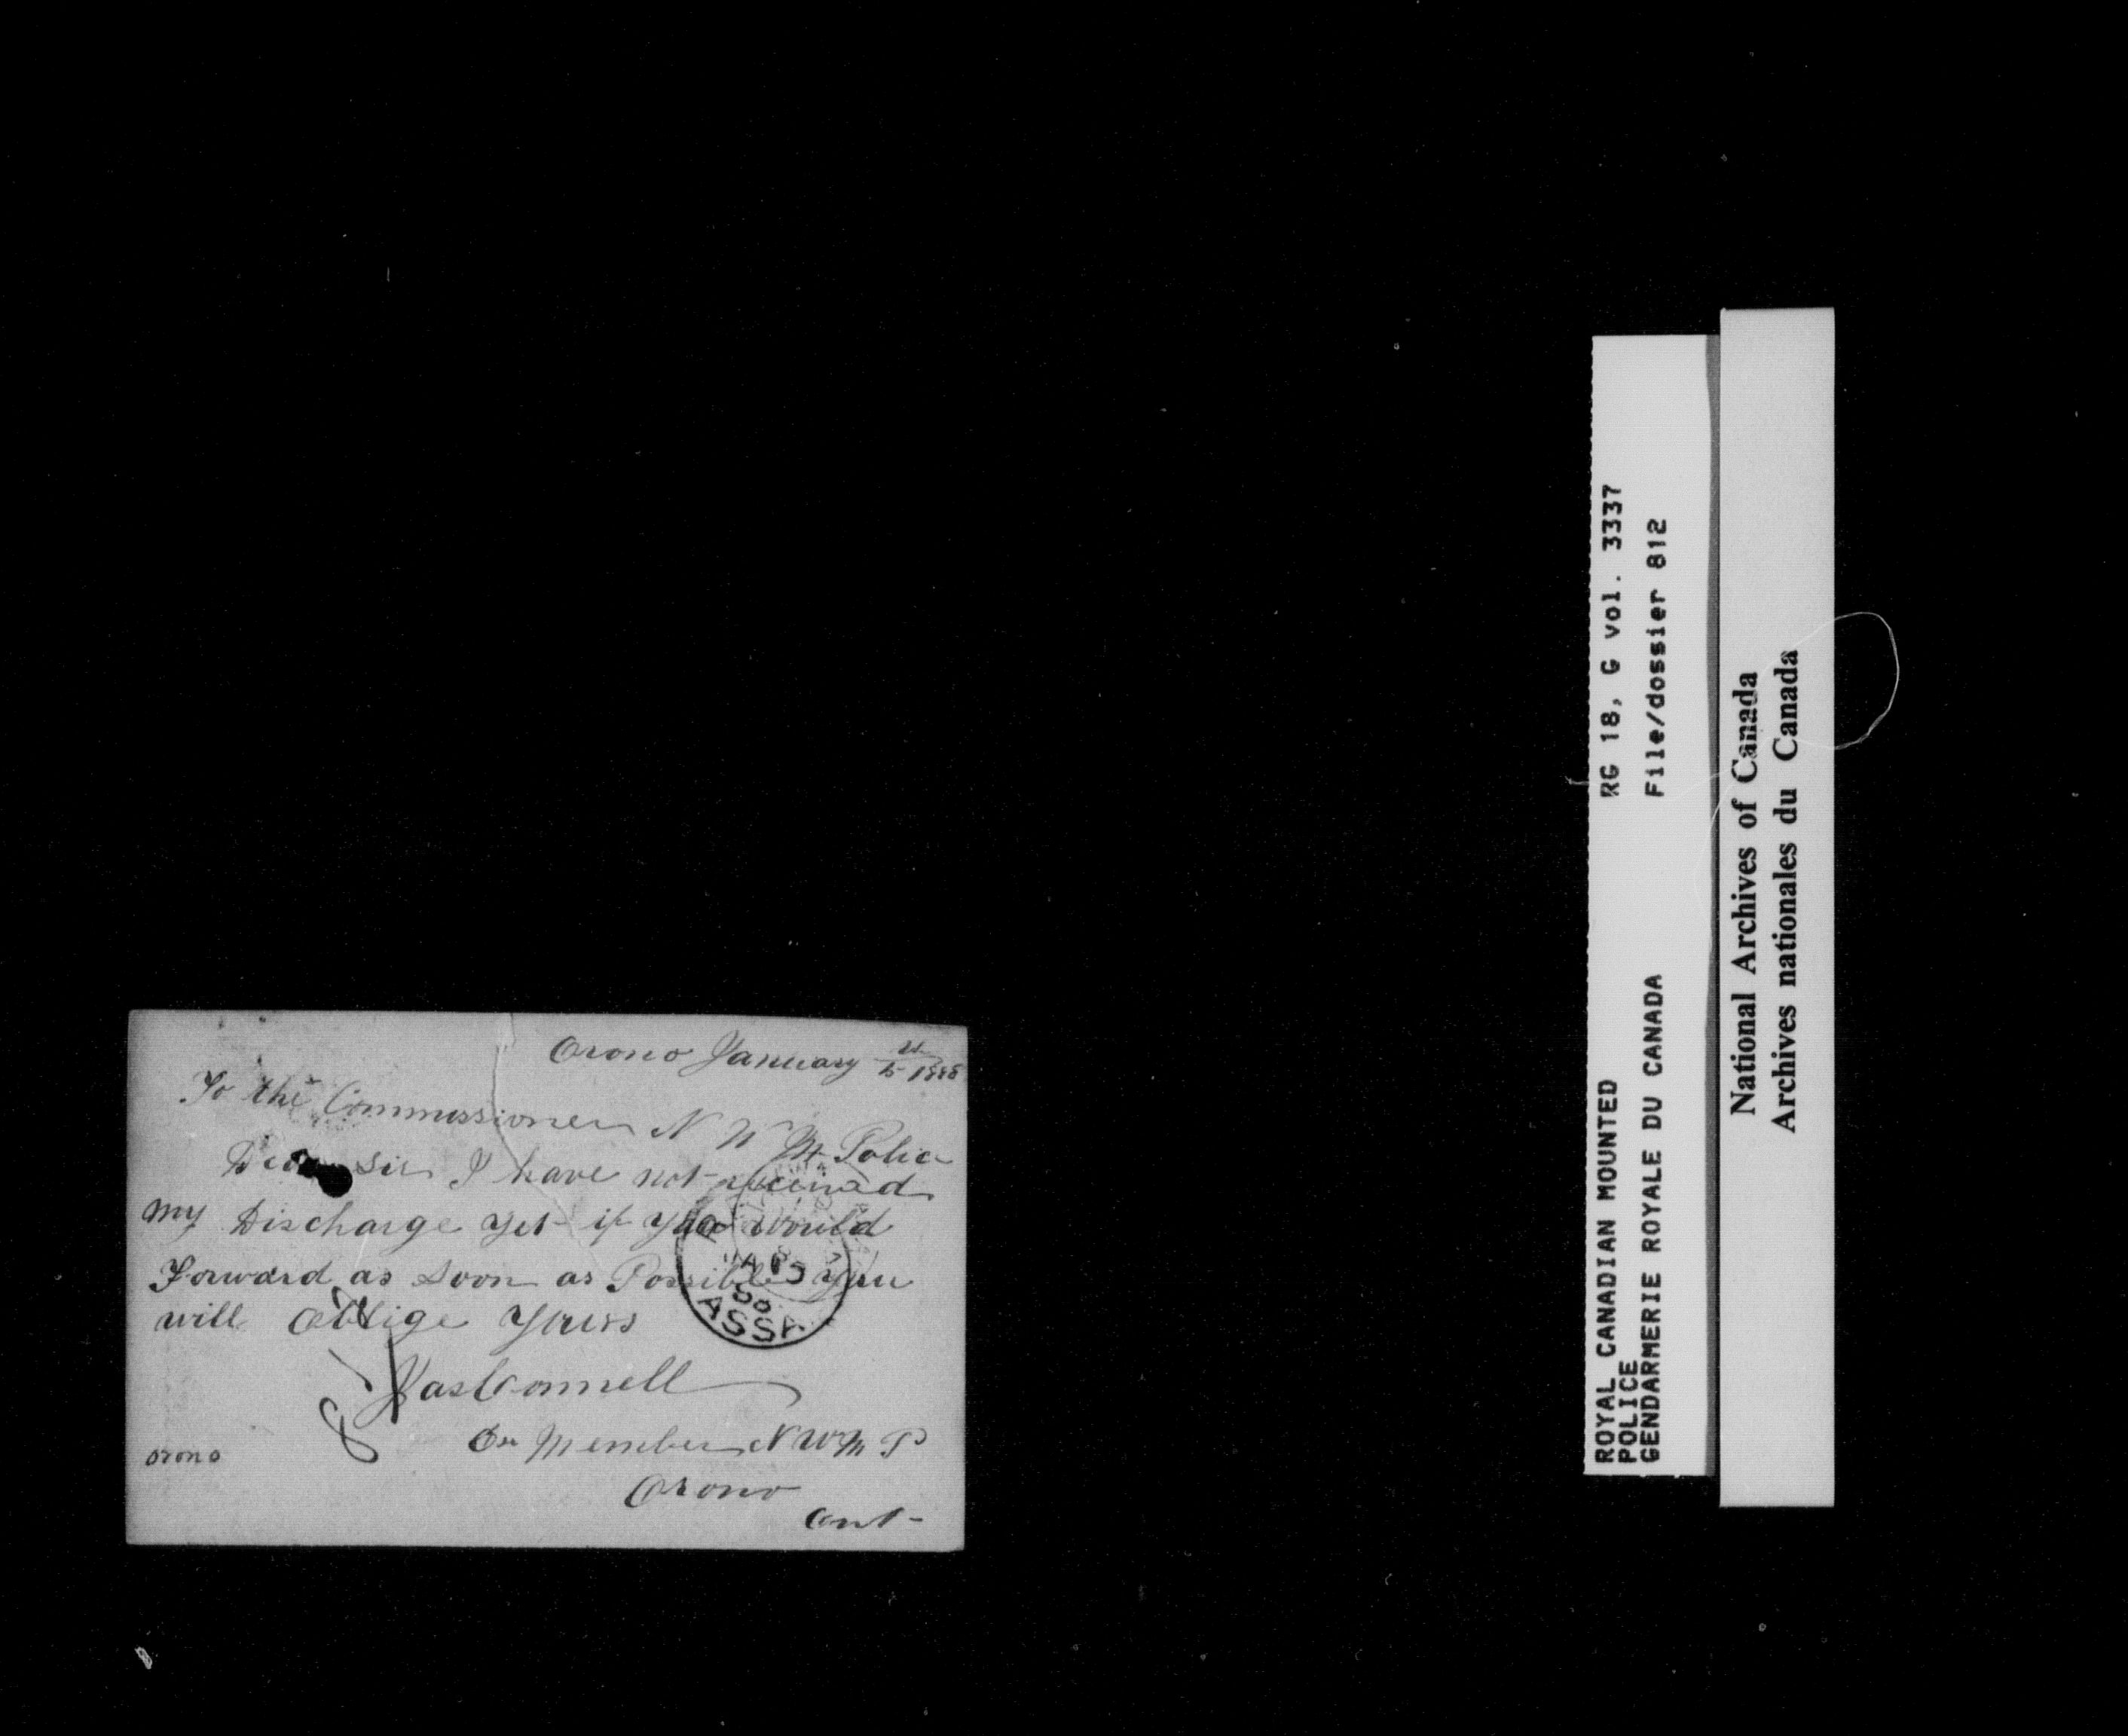 Orono January 1888
To the Commissioner N W M Police
Dear Sir I have not received
my Discharge yet if you would
Forward as soon as Possible you
will oblige yours
Jas Connell
Ex Member N W M P
Orono
Ont-
orono
JA
88
ASSA
ROYAL CANADIAN MOUNTED
POLICE
GENDARMERIE ROYALE DU CANADA
RG 18, G vol. 3337
File/dossier 812
National Archives of Canada
Archives nationales du Canada